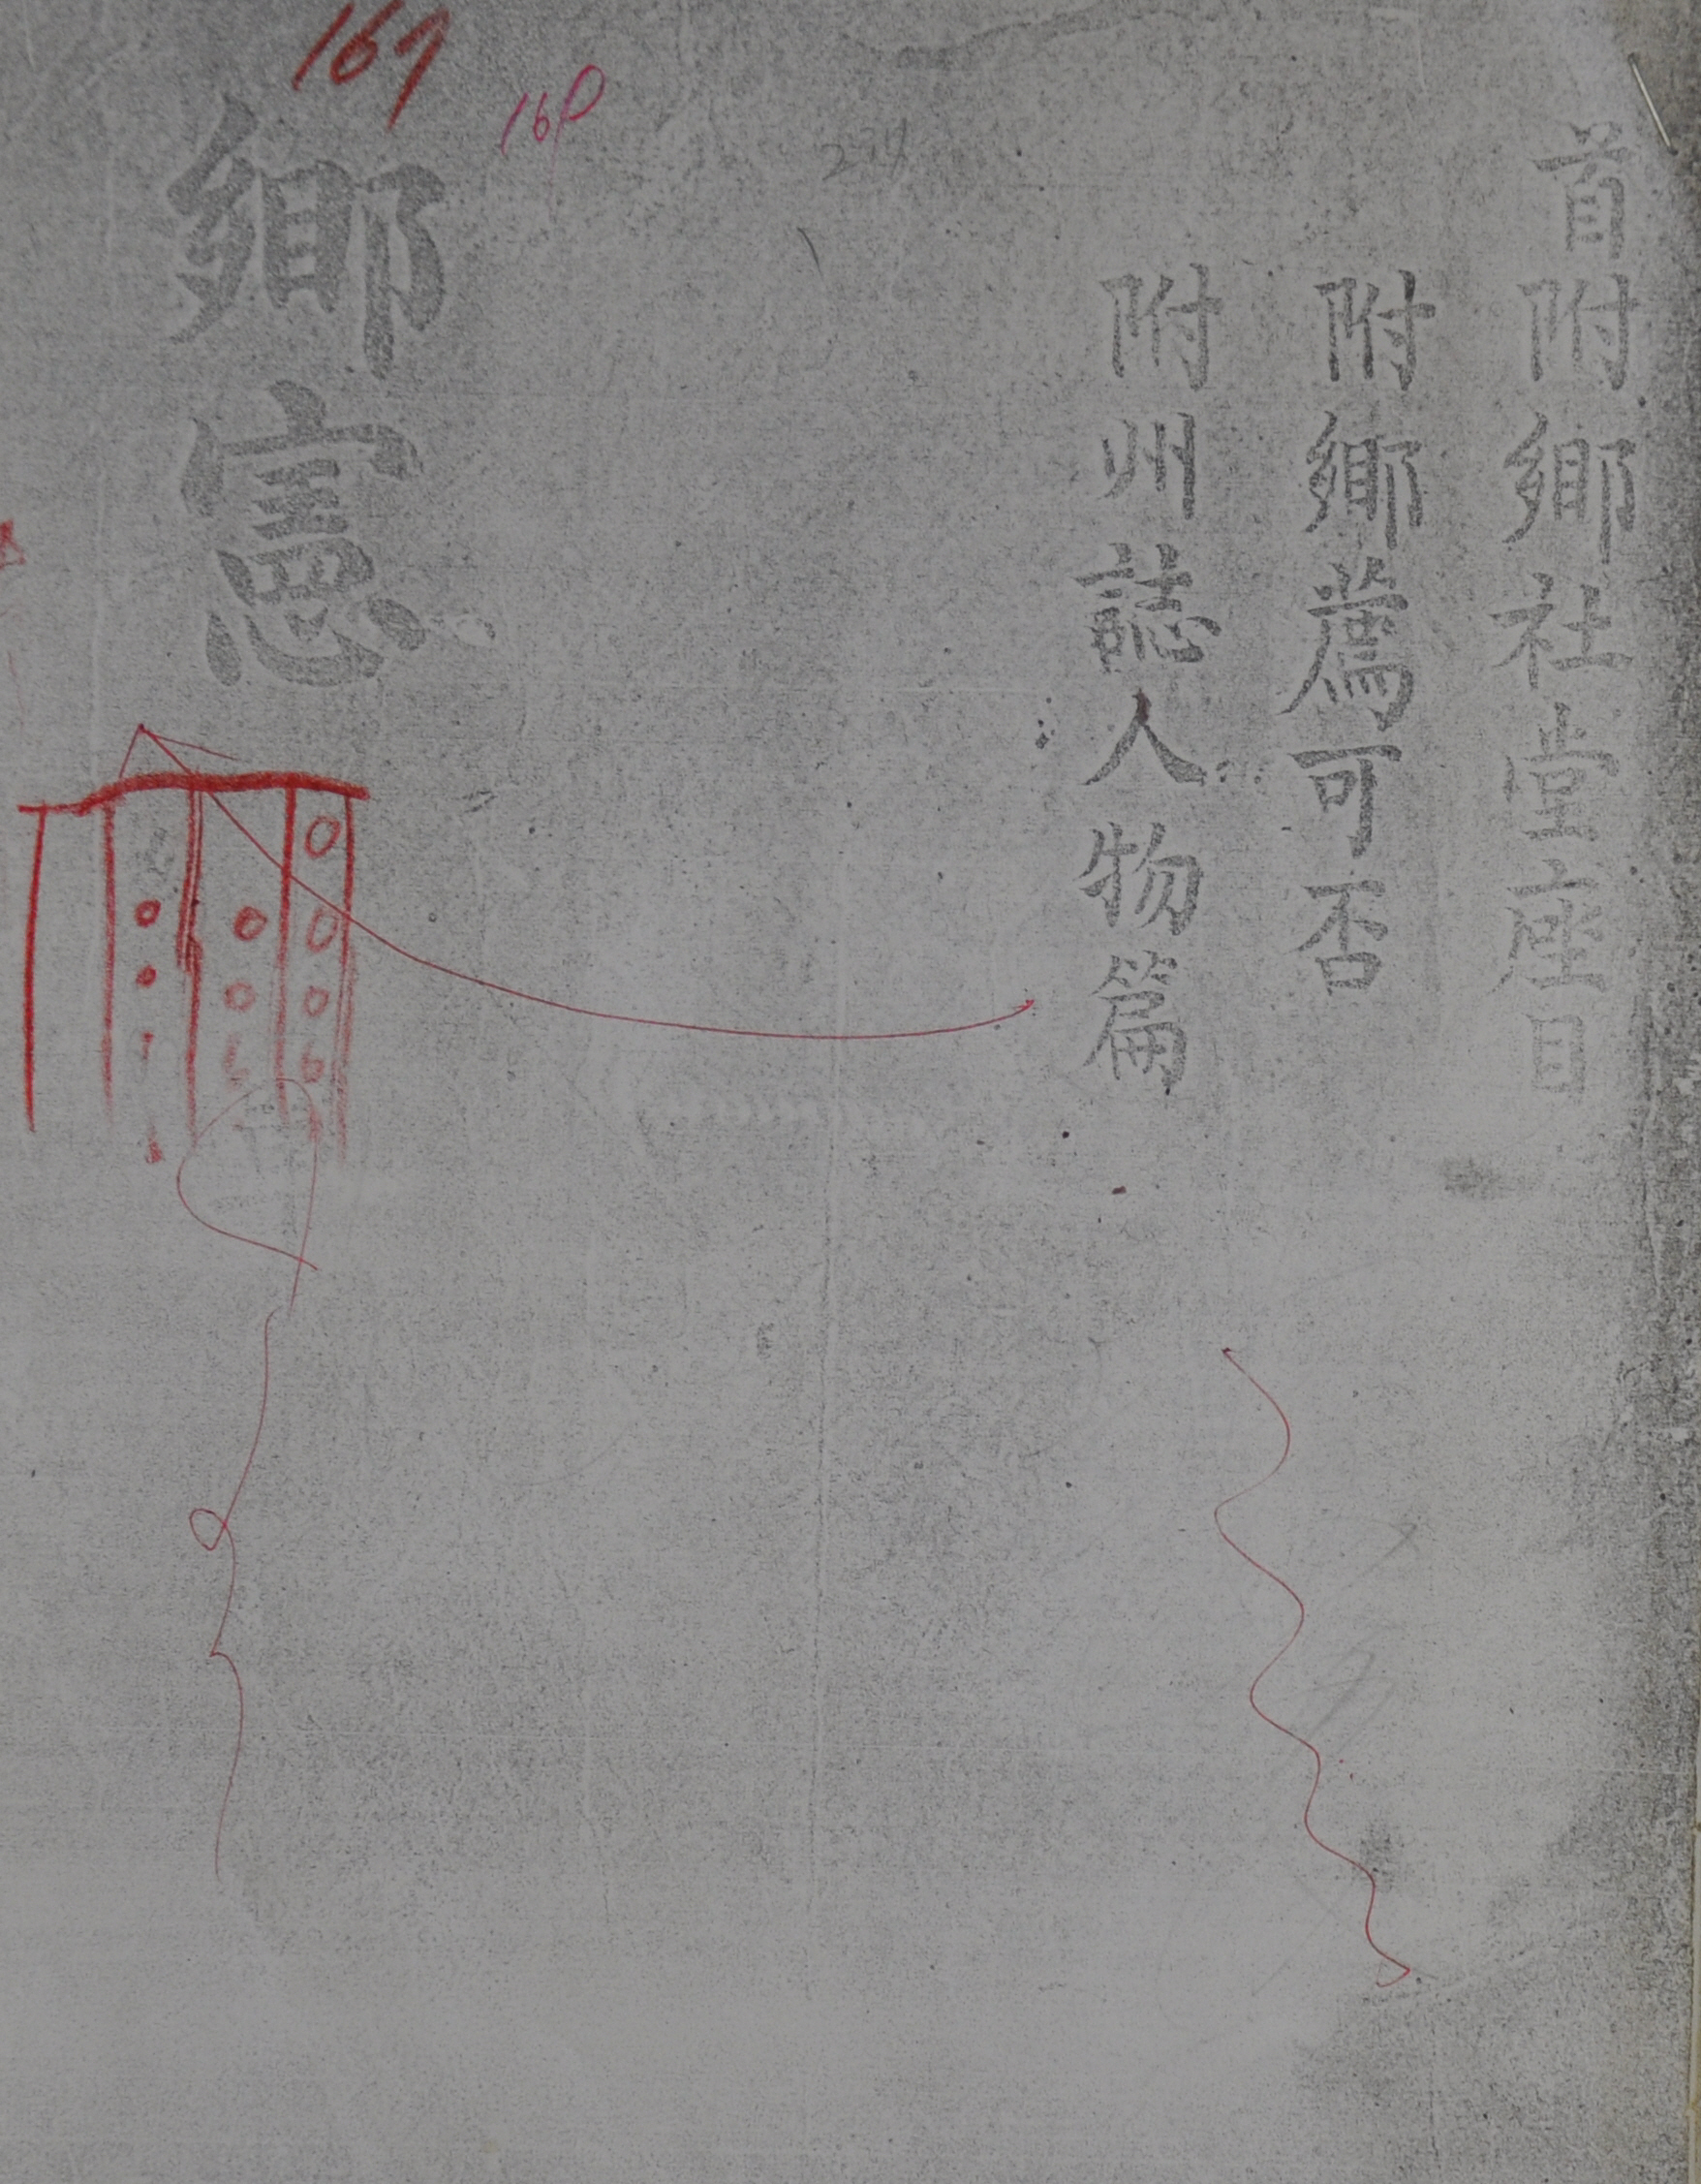 首附鄉社堂座目
附鄉薦可否
附州誌人物篇
鄉憲
169
160